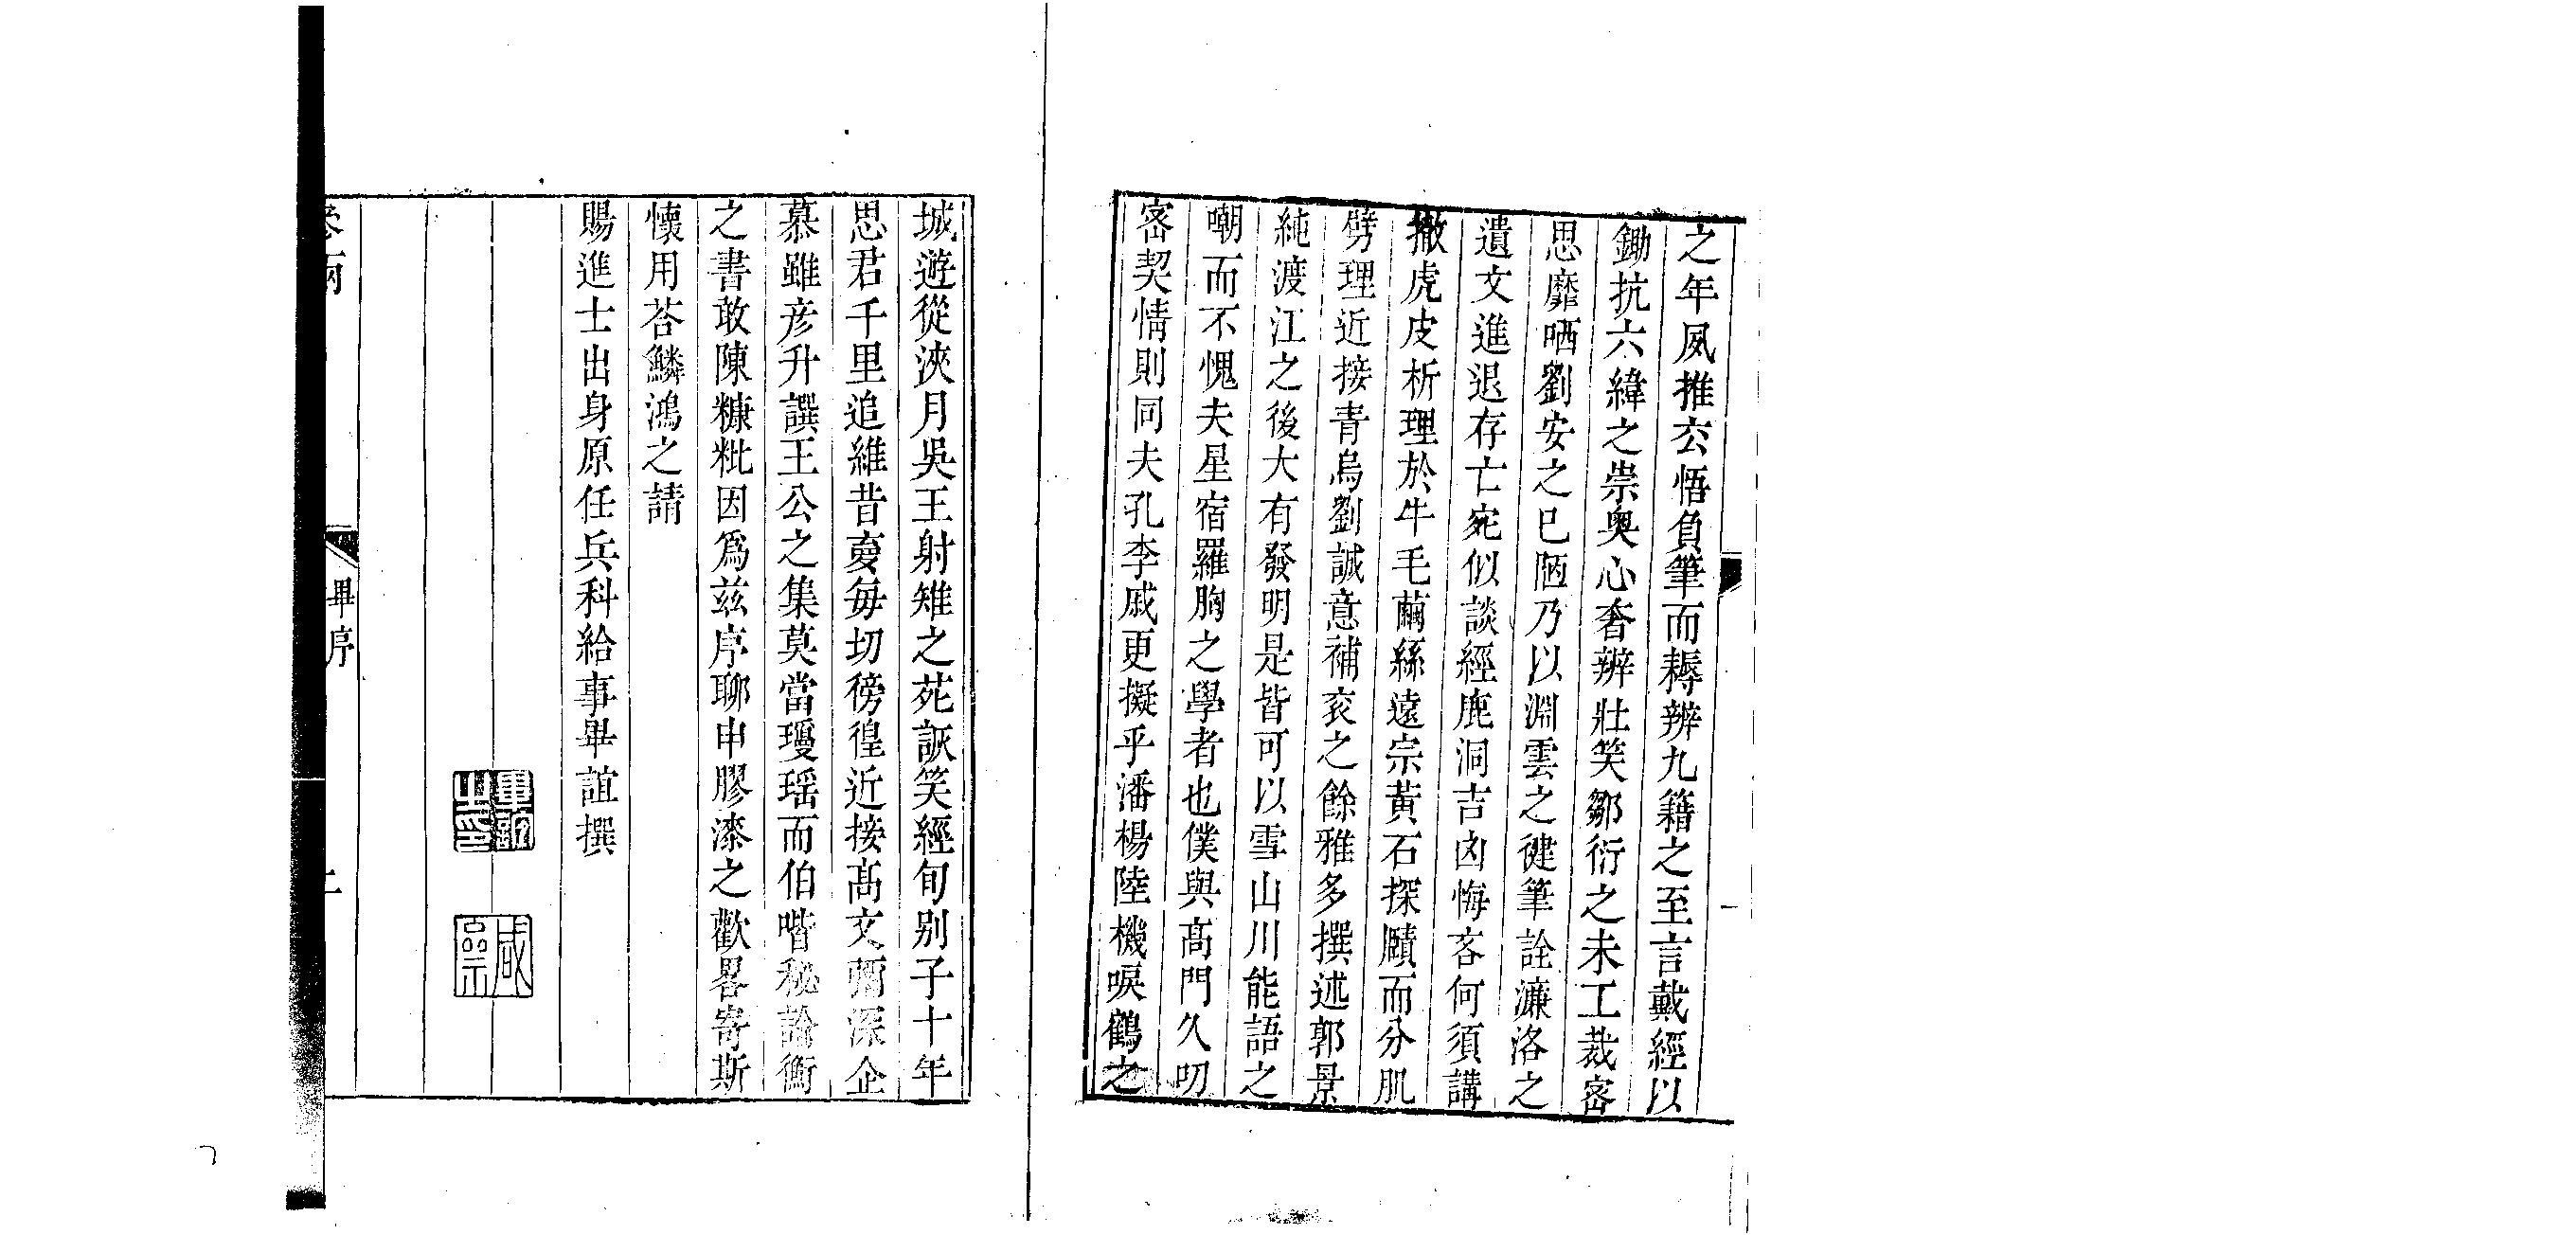 之年夙推玄悟負筆而耨辨九籍之至言戴經以
鋤抗六緯之崇奥心奢辨壯笑鄒衍之未工裁宻
思靡哂劉安之已陋乃以淵雲之健筆詮濂洛之
遺文進退存亡宛似談經鹿洞吉凶悔吝何須講
撤虎皮析理於牛毛繭絲遠宗黄石探賾而分肌
劈理近接青烏劉誠意補亥之餘雅多撰述郭景
純渡江之後大有發明是皆可以雪山川能語之
嘲而不愧夫星宿羅胸之學者也僕與髙門久叨
宻契情則同夫孔李戚更擬乎潘楊陸機唳鶴之
城遊從浹月吳王射雉之苑詼笑經旬别子十年
思君千里追維昔夐每切徬徨近接髙文彌深企
慕雖彦升譔王公之集莫當瓊瑶而伯喈秘論衡
之書敢陳糠粃因爲兹序聊申膠漆之歡畧寄斯
懷用荅鱗鴻之請
賜進士出身原任兵科給事畢誼撰
畢誼之印
咸
畢序